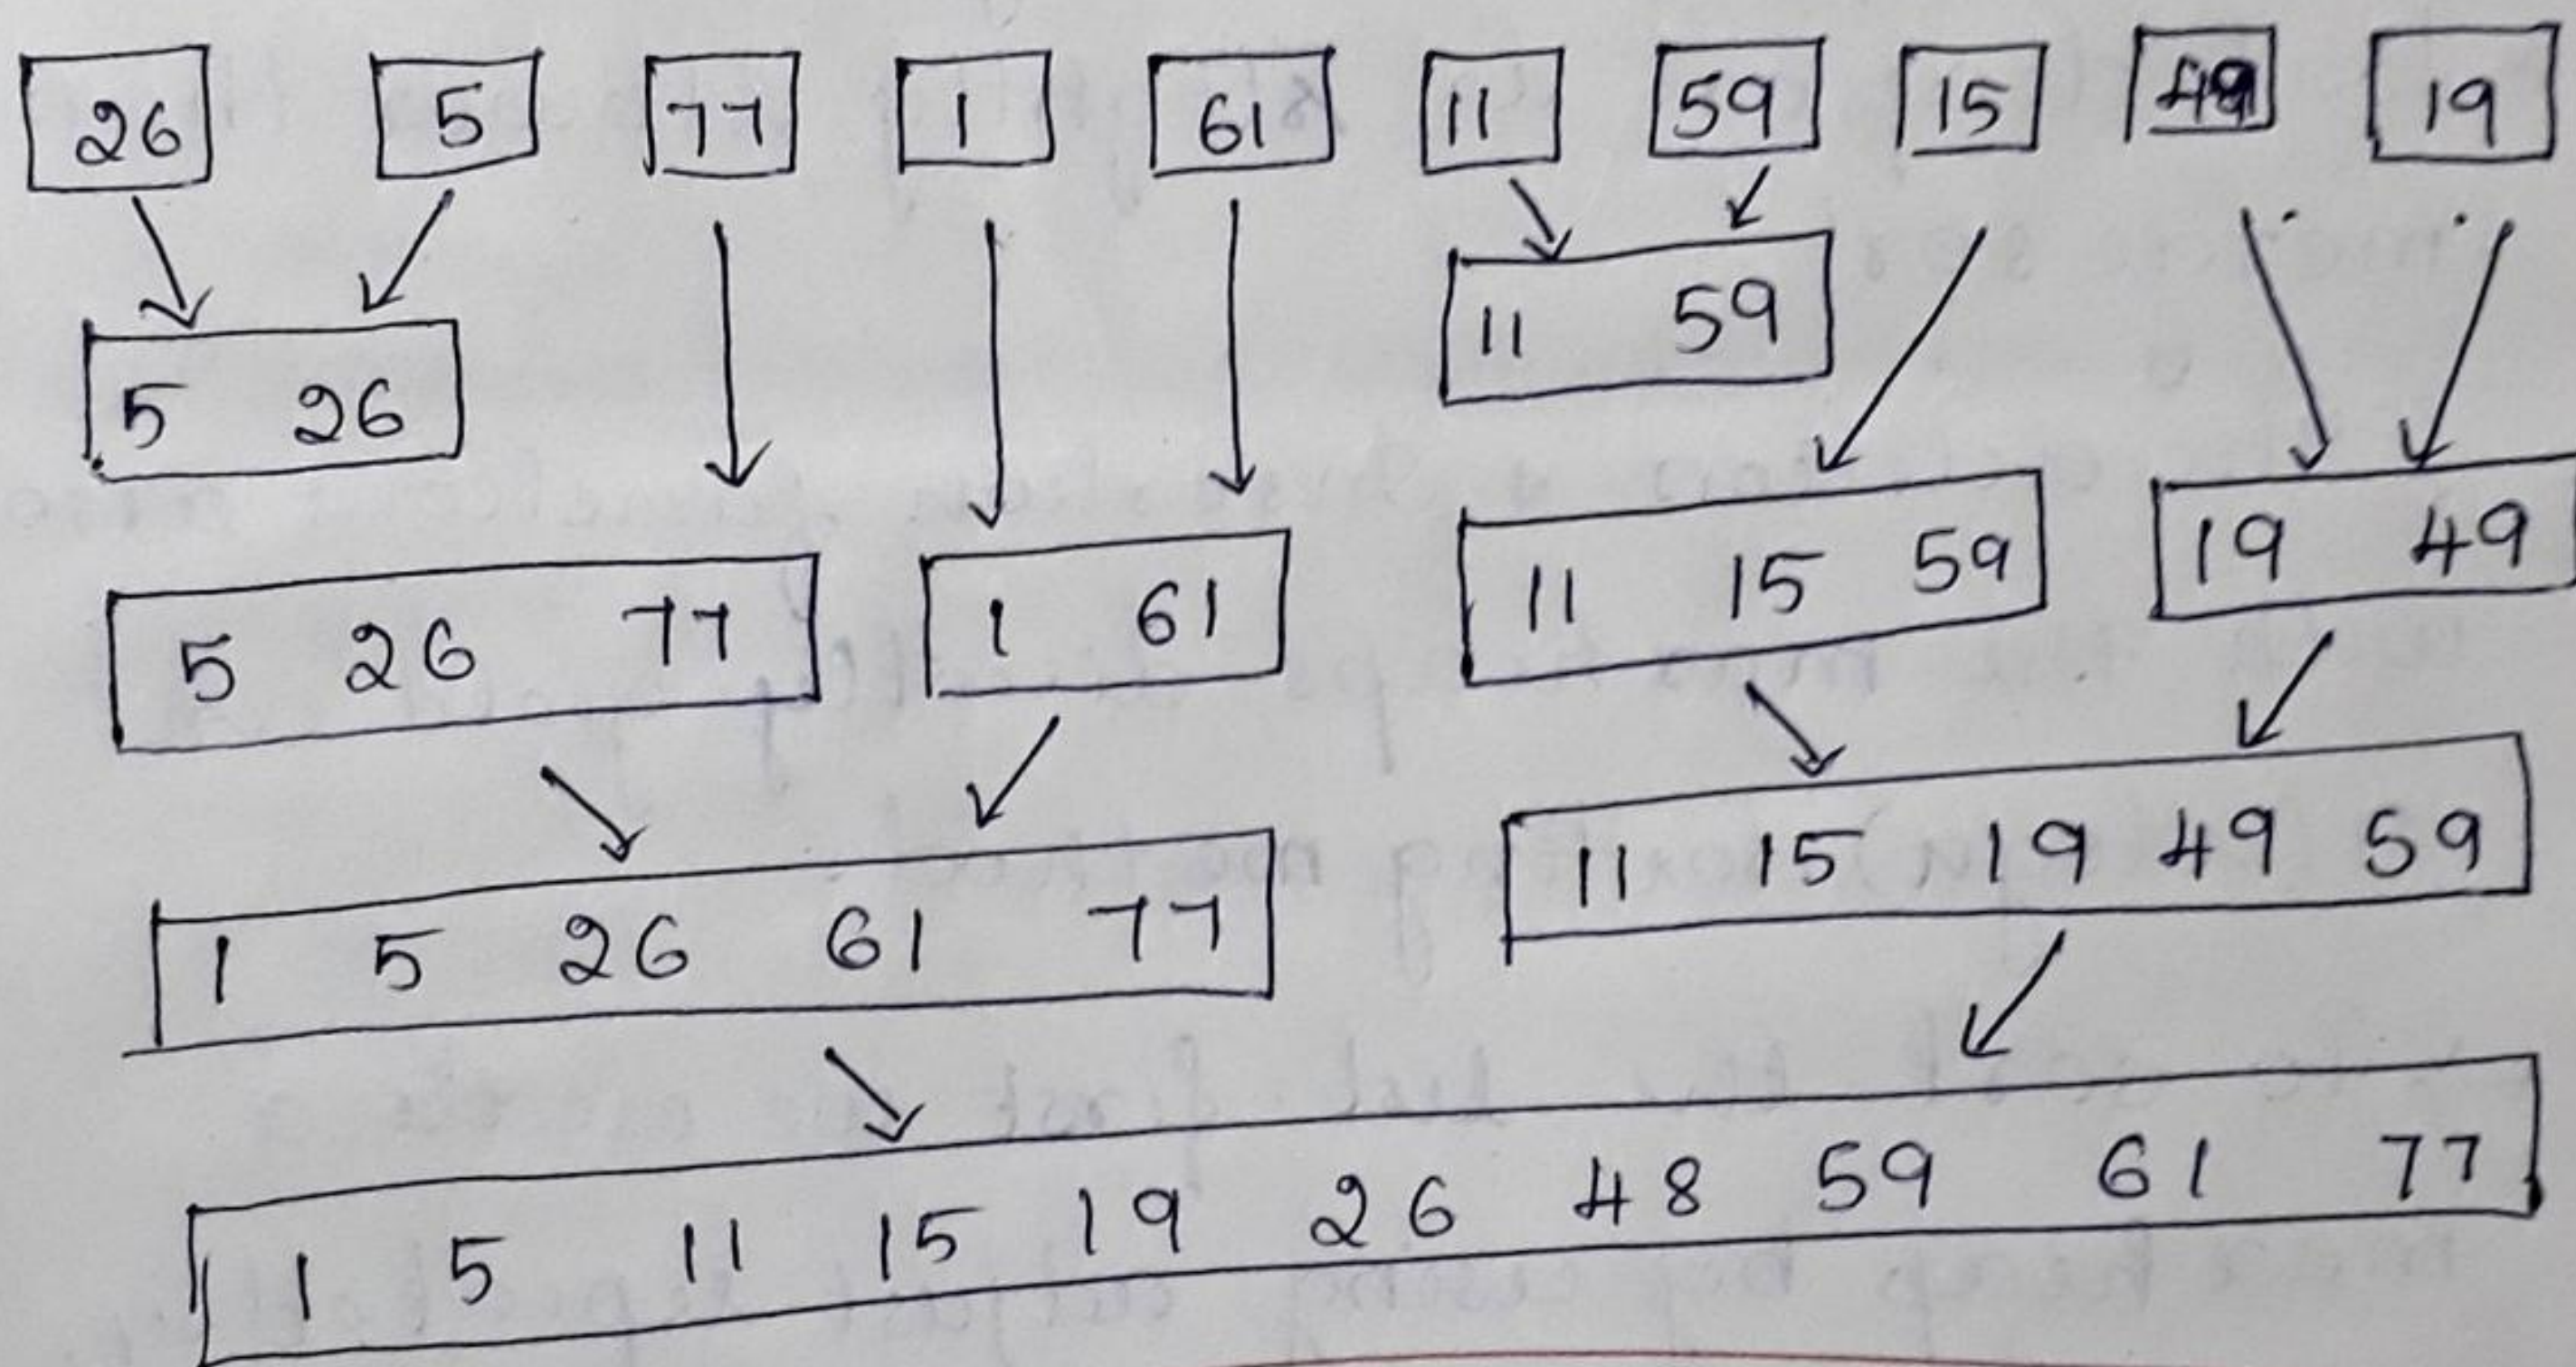 26 5 77 1 61 11 59 15 49 19
11 59
5 26
5 26 77 1 61 11 15 59 19 49
1 5 26 61 77 11 15 19 49 59
1 5 11 15 19 26 48 59 61 77